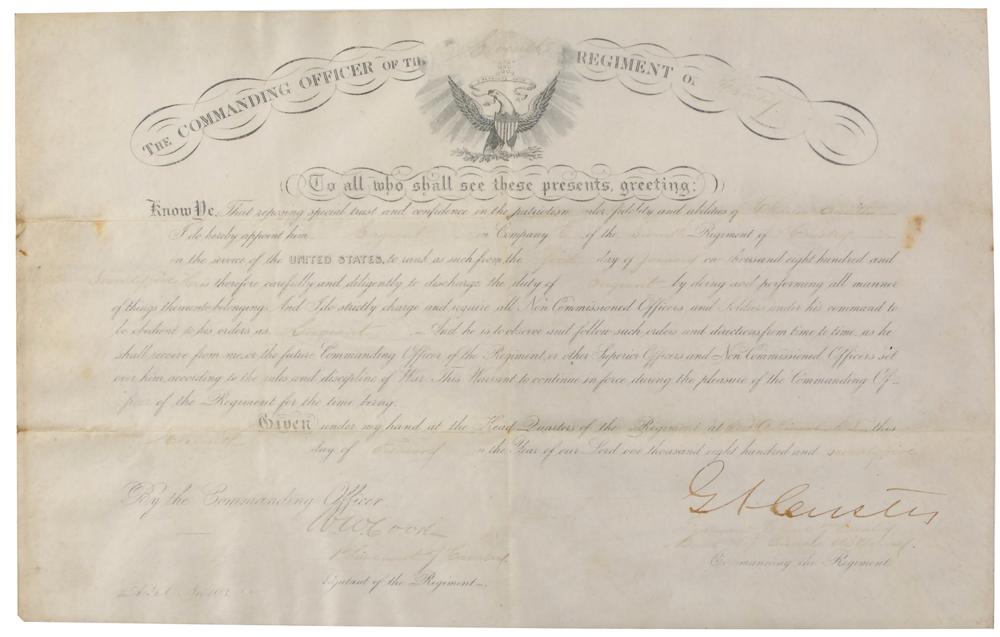 THE COMMANDING OFFICER OF TH REGIMENT O
To all who shall see these presents, greeting:
Know Ye, That reposing special trust and confidence in the patriotism valor, fidelity and abilities of
I do hereby appoint him Sergeant in Company of the Seventh Regiment of Cavalry
in the service of the UNITED STATES, to rank as such from the day of January one thousand eight hundred and
Seventy five He is therefore carefully and diligently to discharge the duty of Sergeant by doing and performing all manner
of things thereunto belonging. And I do strictly charge and require all Non Commissioned Officers and Soldiers under his command to
be obedient to his orders as Sergeant And he is to observe and follow such orders and directions from time to time, as he
shall receive from me, or the future Commanding Officer of the Regiment, or other Superior Officers and Non Commissioned Officers set
over him, according to the rules and discipline of War. This Warrant to continue in force during the pleasure of the Commanding Of-
ficer of the Regiment for the time being.
Given under my hand at the Head Quarters of the Regiment at this
day of in the Year of our Lord one thousand eight hundred and seventy five
By the Commanding Officer
W W Cook
G A Custer
1st Lieutenant 7 Cavalry
Commanding the Regiment
Adjutant of the Regiment.